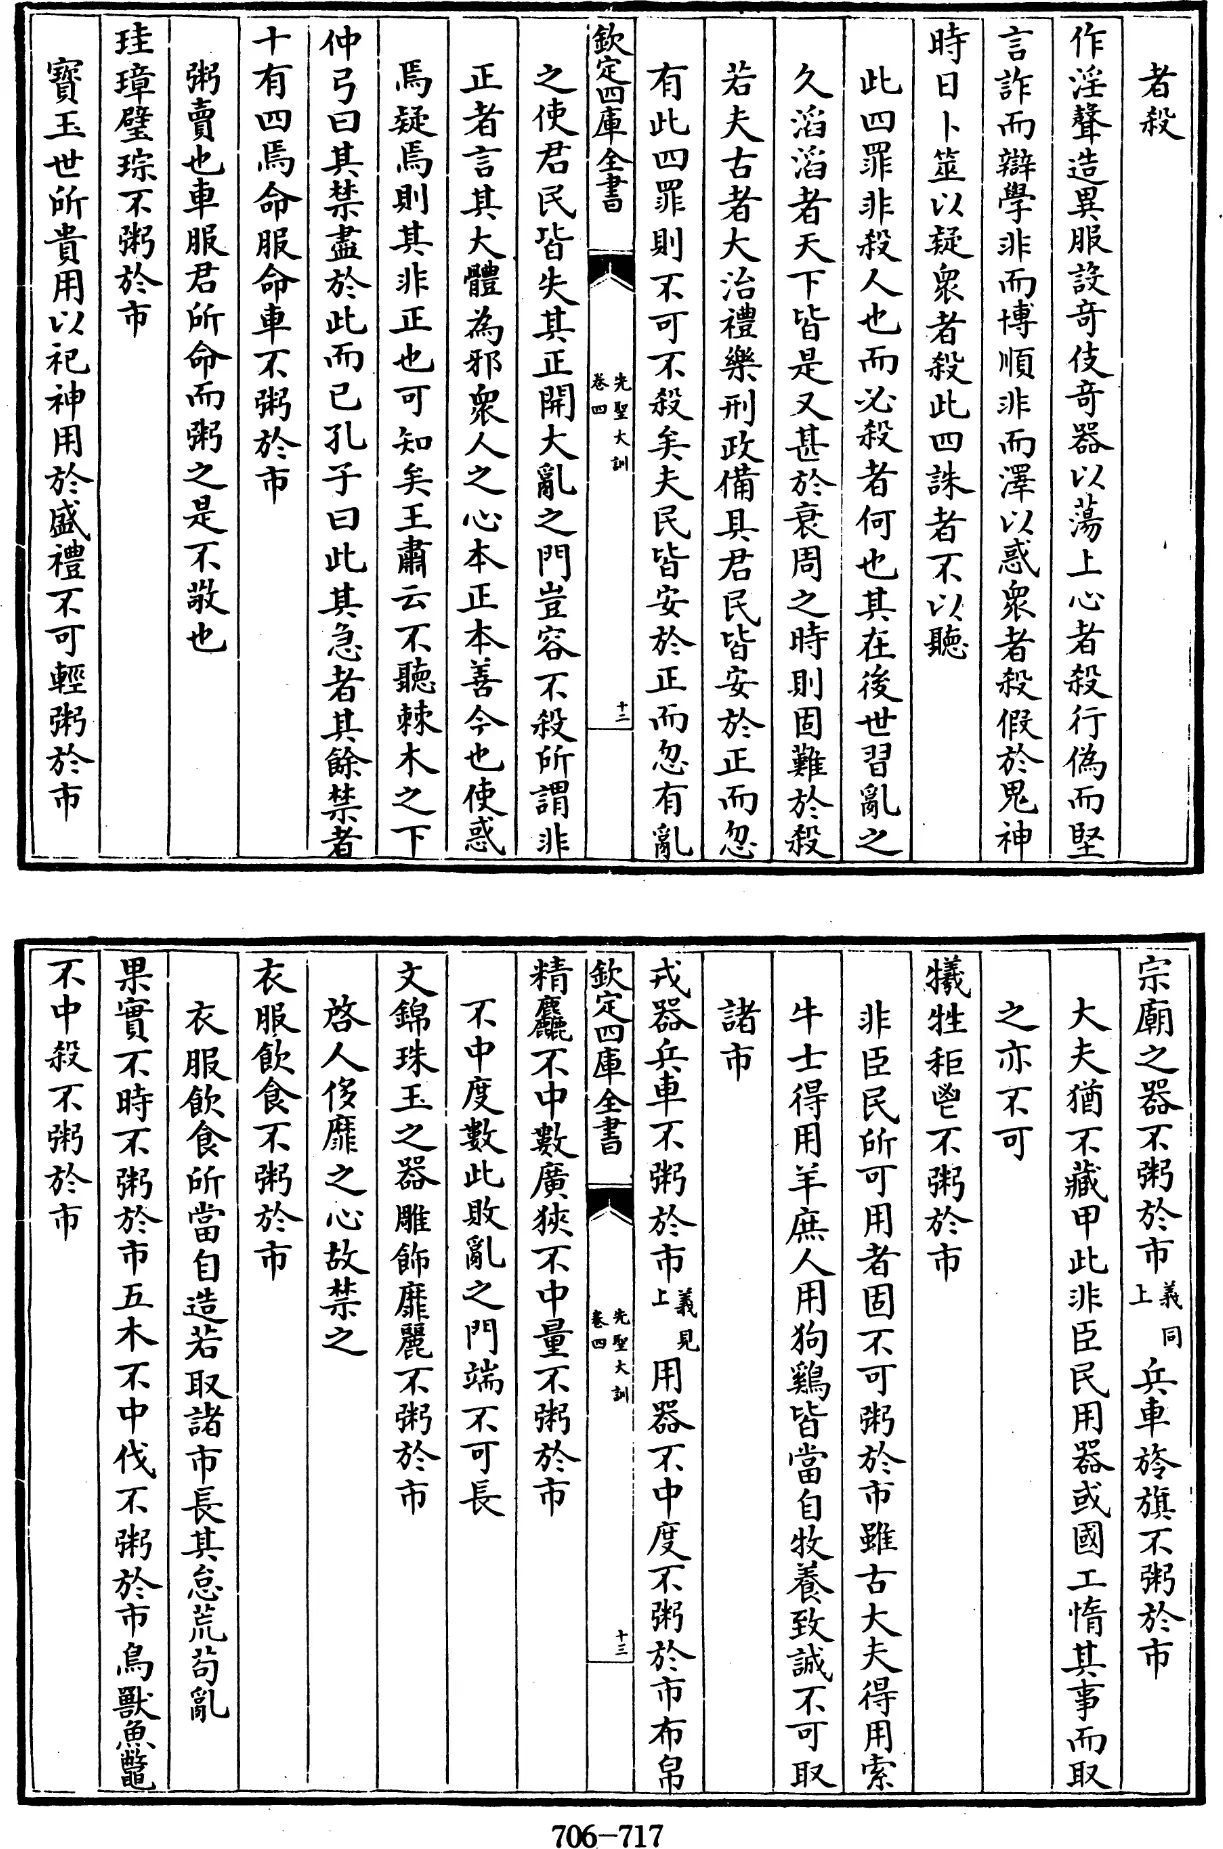 者殺
作淫聲造異服設奇伎奇器以蕩上心者殺行偽而堅
言詐而辯學非而博順非而澤以惑衆者殺假於鬼神
時日卜筮以疑衆者殺此四誅者不以聽
此四罪非殺人也而必殺者何也其在後世習亂之
久滔滔者天下皆是又甚於衰周之時則固難於殺
若夫古者大治禮樂刑政備具君民皆安於正而忽
有此四罪則不可不殺矣夫民皆安於正而忽有亂
欽定四庫全書
先聖大訓
卷四
十二
之使君民皆失其正開大亂之門豈容不殺所謂非
正者言其大體為邪衆人之心本正本善今也使惑
焉疑焉則其非正也可知矣王肅云不聽棘木之下
仲弓曰其禁盡於此而已孔子曰此其急者其餘禁者
十有四焉命服命車不粥於市
粥賣也車服君所命而粥之是不敬也
珪璋璧琮不粥於市
寳玉世所貴用以祀神用於盛禮不可輕粥於市
宗廟之器不粥於市義同上兵車旍旗不粥於市
大夫猶不藏甲此非臣民用器或國工惰其事而取
之亦不可
犧牲秬鬯不粥於市
非臣民所可用者固不可粥於市雖古大夫得用索
牛士得用羊庶人用狗鷄皆當自牧養致誠不可取
諸市
戎器兵車不粥於市義見上用器不中度不粥於市布帛
欽定四庫全書
先聖大訓
卷四
十三
精麤不中數廣狹不中量不粥於市
不中度數此敗亂之門端不可長
文錦珠玉之器雕飾靡麗不粥於市
啓人侈靡之心故禁之
衣服飲食不粥於市
衣服飲食所當自造若取諸市長其怠荒茍亂
果實不時不粥於市五木不中伐不粥於市鳥獸魚鼈
不中殺不粥於市
706-717